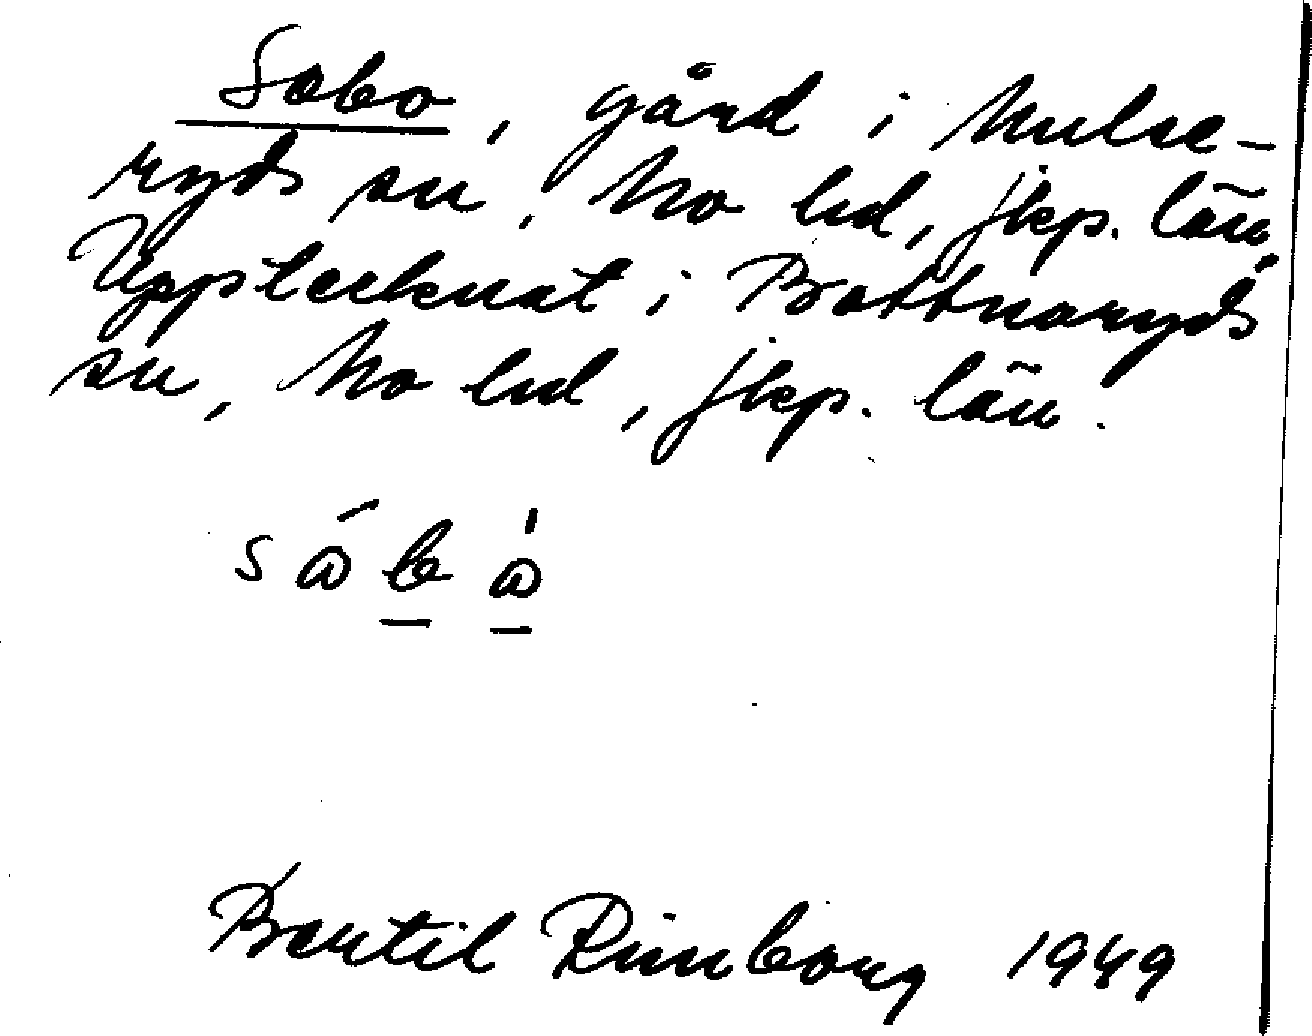 Sobo, gård i Mulse-
ryds sn, Mo hd, Jkp. län.
Upptecknat i Bottnaryds
sn, Mo hd, Jkp. län.
Bertil Rimborg 1949